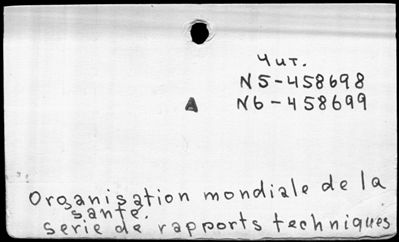 Чит.
N5-458698
A
N6-458699
Organisation mondiale de la
santé.
Serie de rapports techniques